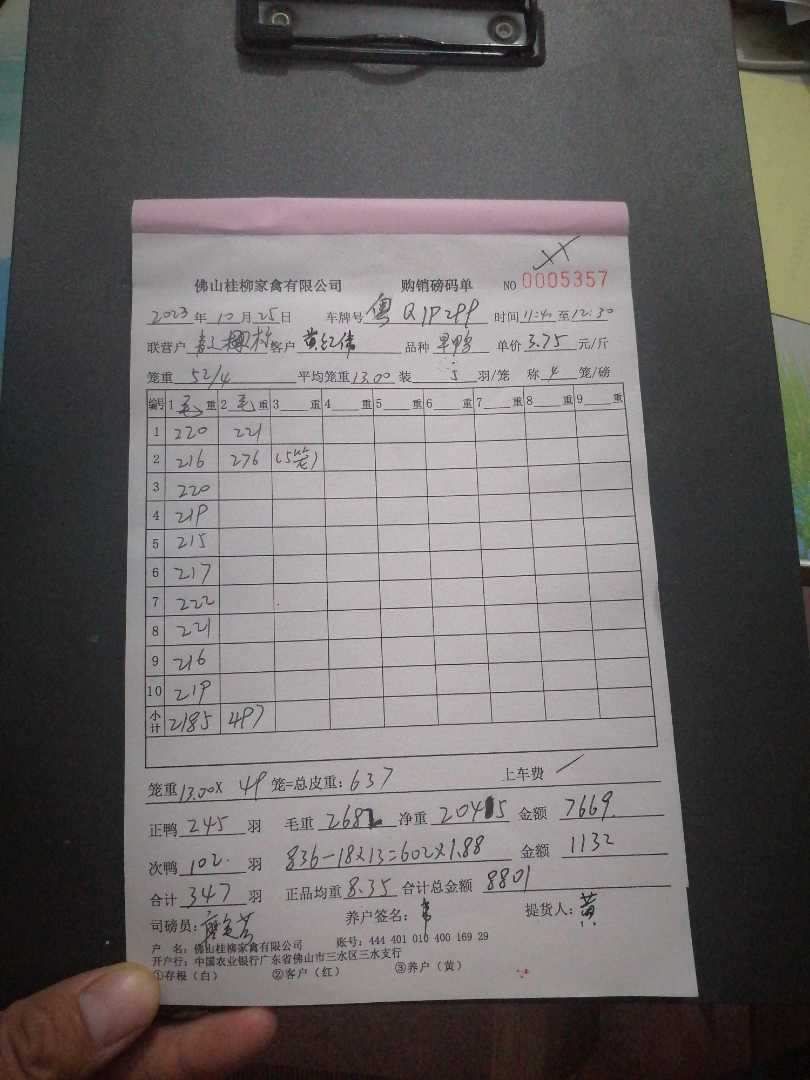 佛山桂柳家禽有限公司 购销磅码单 NO 0005357
2023年10月25日 车牌号 粤Q1P299 时间11:40至12:30
联营户 客户 黄红伟 品种 旱鸭 单价3.75元/斤
笼重 52/4 平均笼重13.00 装 5 羽/笼 称 4 笼/磅
编号 1毛重 2毛重 3重 4重 5重 6重 7重 8重 9重
1 220 221
2 216 276 (5笼)
3 220
4 219
5 215
6 217
7 222
8 221
9 216
10 219
小计 2185 497
笼重13.00X 49 笼=总皮重:637 上车费 /
正鸭 245 羽 毛重 2682 净重 2045 金额 7669.
次鸭 102. 羽 836-18X13=602X1.88 金额 1132
合计 347 羽 正品均重 8.35 合计总金额 8801
司磅员: 养户签名: 提货人:黄
户 名:佛山桂柳家禽有限公司 账号:444 401 010 400 169 29
开户行:中国农业银行广东省佛山市三水区三水支行
①存根(白) ②客户(红) ③养户(黄)